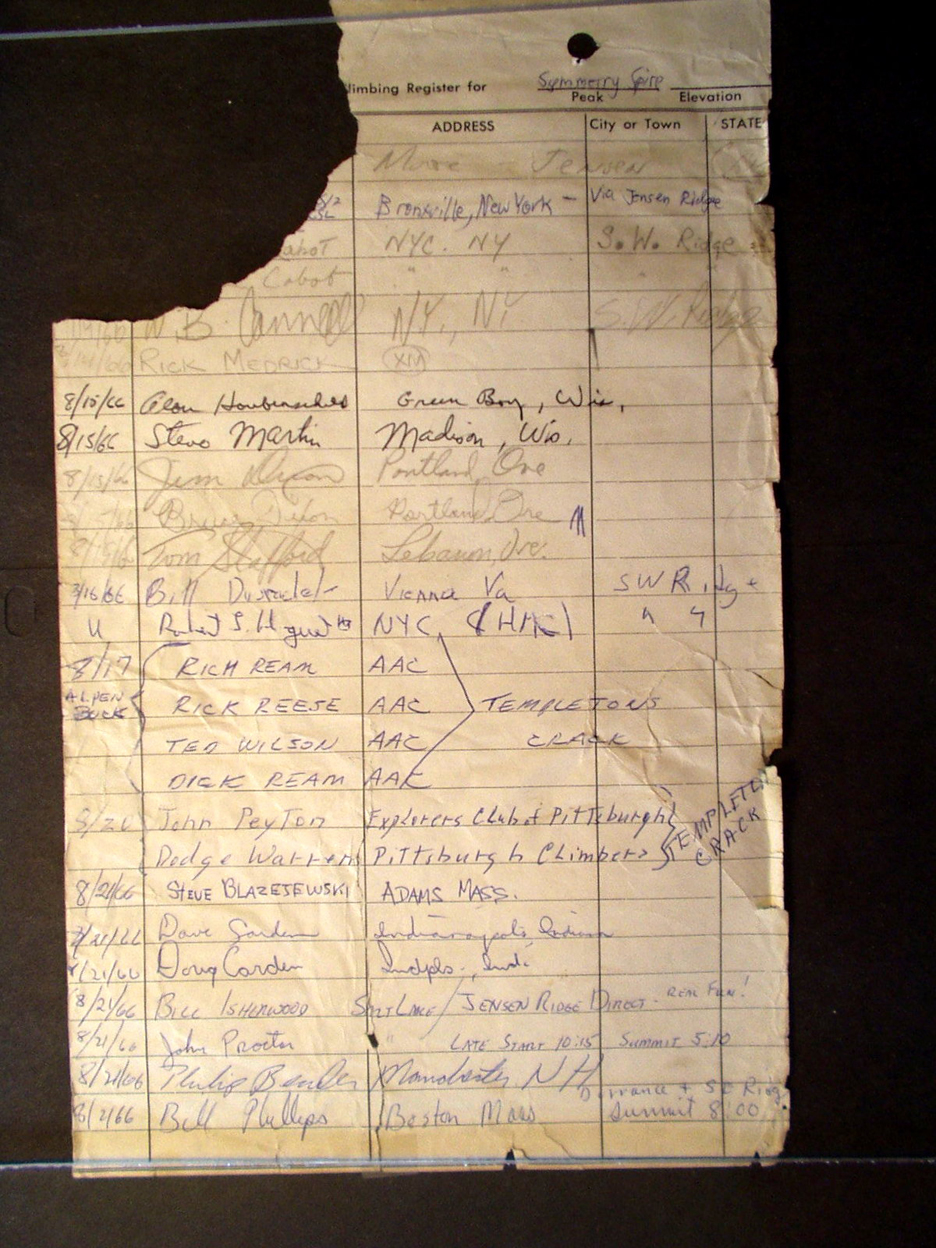 limbing Register for Symmetry Spire
Peak Elevation
ADDRESS City or Town STATE
Jensen
Bronxville, New York - Via Jensen Ridge
Cabot NYC. NY S.W. Ridge
Cabot " " "
N.Y., NY S.W. Ridge
RICK MEDRICK
8/15/66 Green Bay, Wis.
8/15/66 Steve Martin Madison, Wis.
8/15/66 Jim Dixon Portland, Ore
Dixon Portland, Ore
Tom Stafford Lebanon, Ore.
Bill Vienna Va SW Ridge
" Robert S. NYC, " "
8/17 RICH REAM AAC
ALPEN BOCK RICK REESE AAC TEMPLETONS
TED WILSON AAC CRACK
DICK REAM AAC
8/20 John Peyton Explorers Club of Pittsburgh TEMPLETON
Dodge Warren Pittsburgh Climbers CRACK
8/21/66 STEVE BLAZEJEWSKI ADAMS MASS.
8/21/66 Dave Garden Indianapolis, Indiana
8/21/66 Doug Indpls., Ind.
8/21/66 BILL ISHERWOOD SALT LAKE / JENSEN RIDGE DIRECT - REAL FUN!
8/21/66 John Proctor " LATE START 10:15 SUMMIT 5:10
8/21/66 Philip Manchester NH
+ SE Ridge
8/21/66 Bill Phillips Boston Mass Summit 8:00